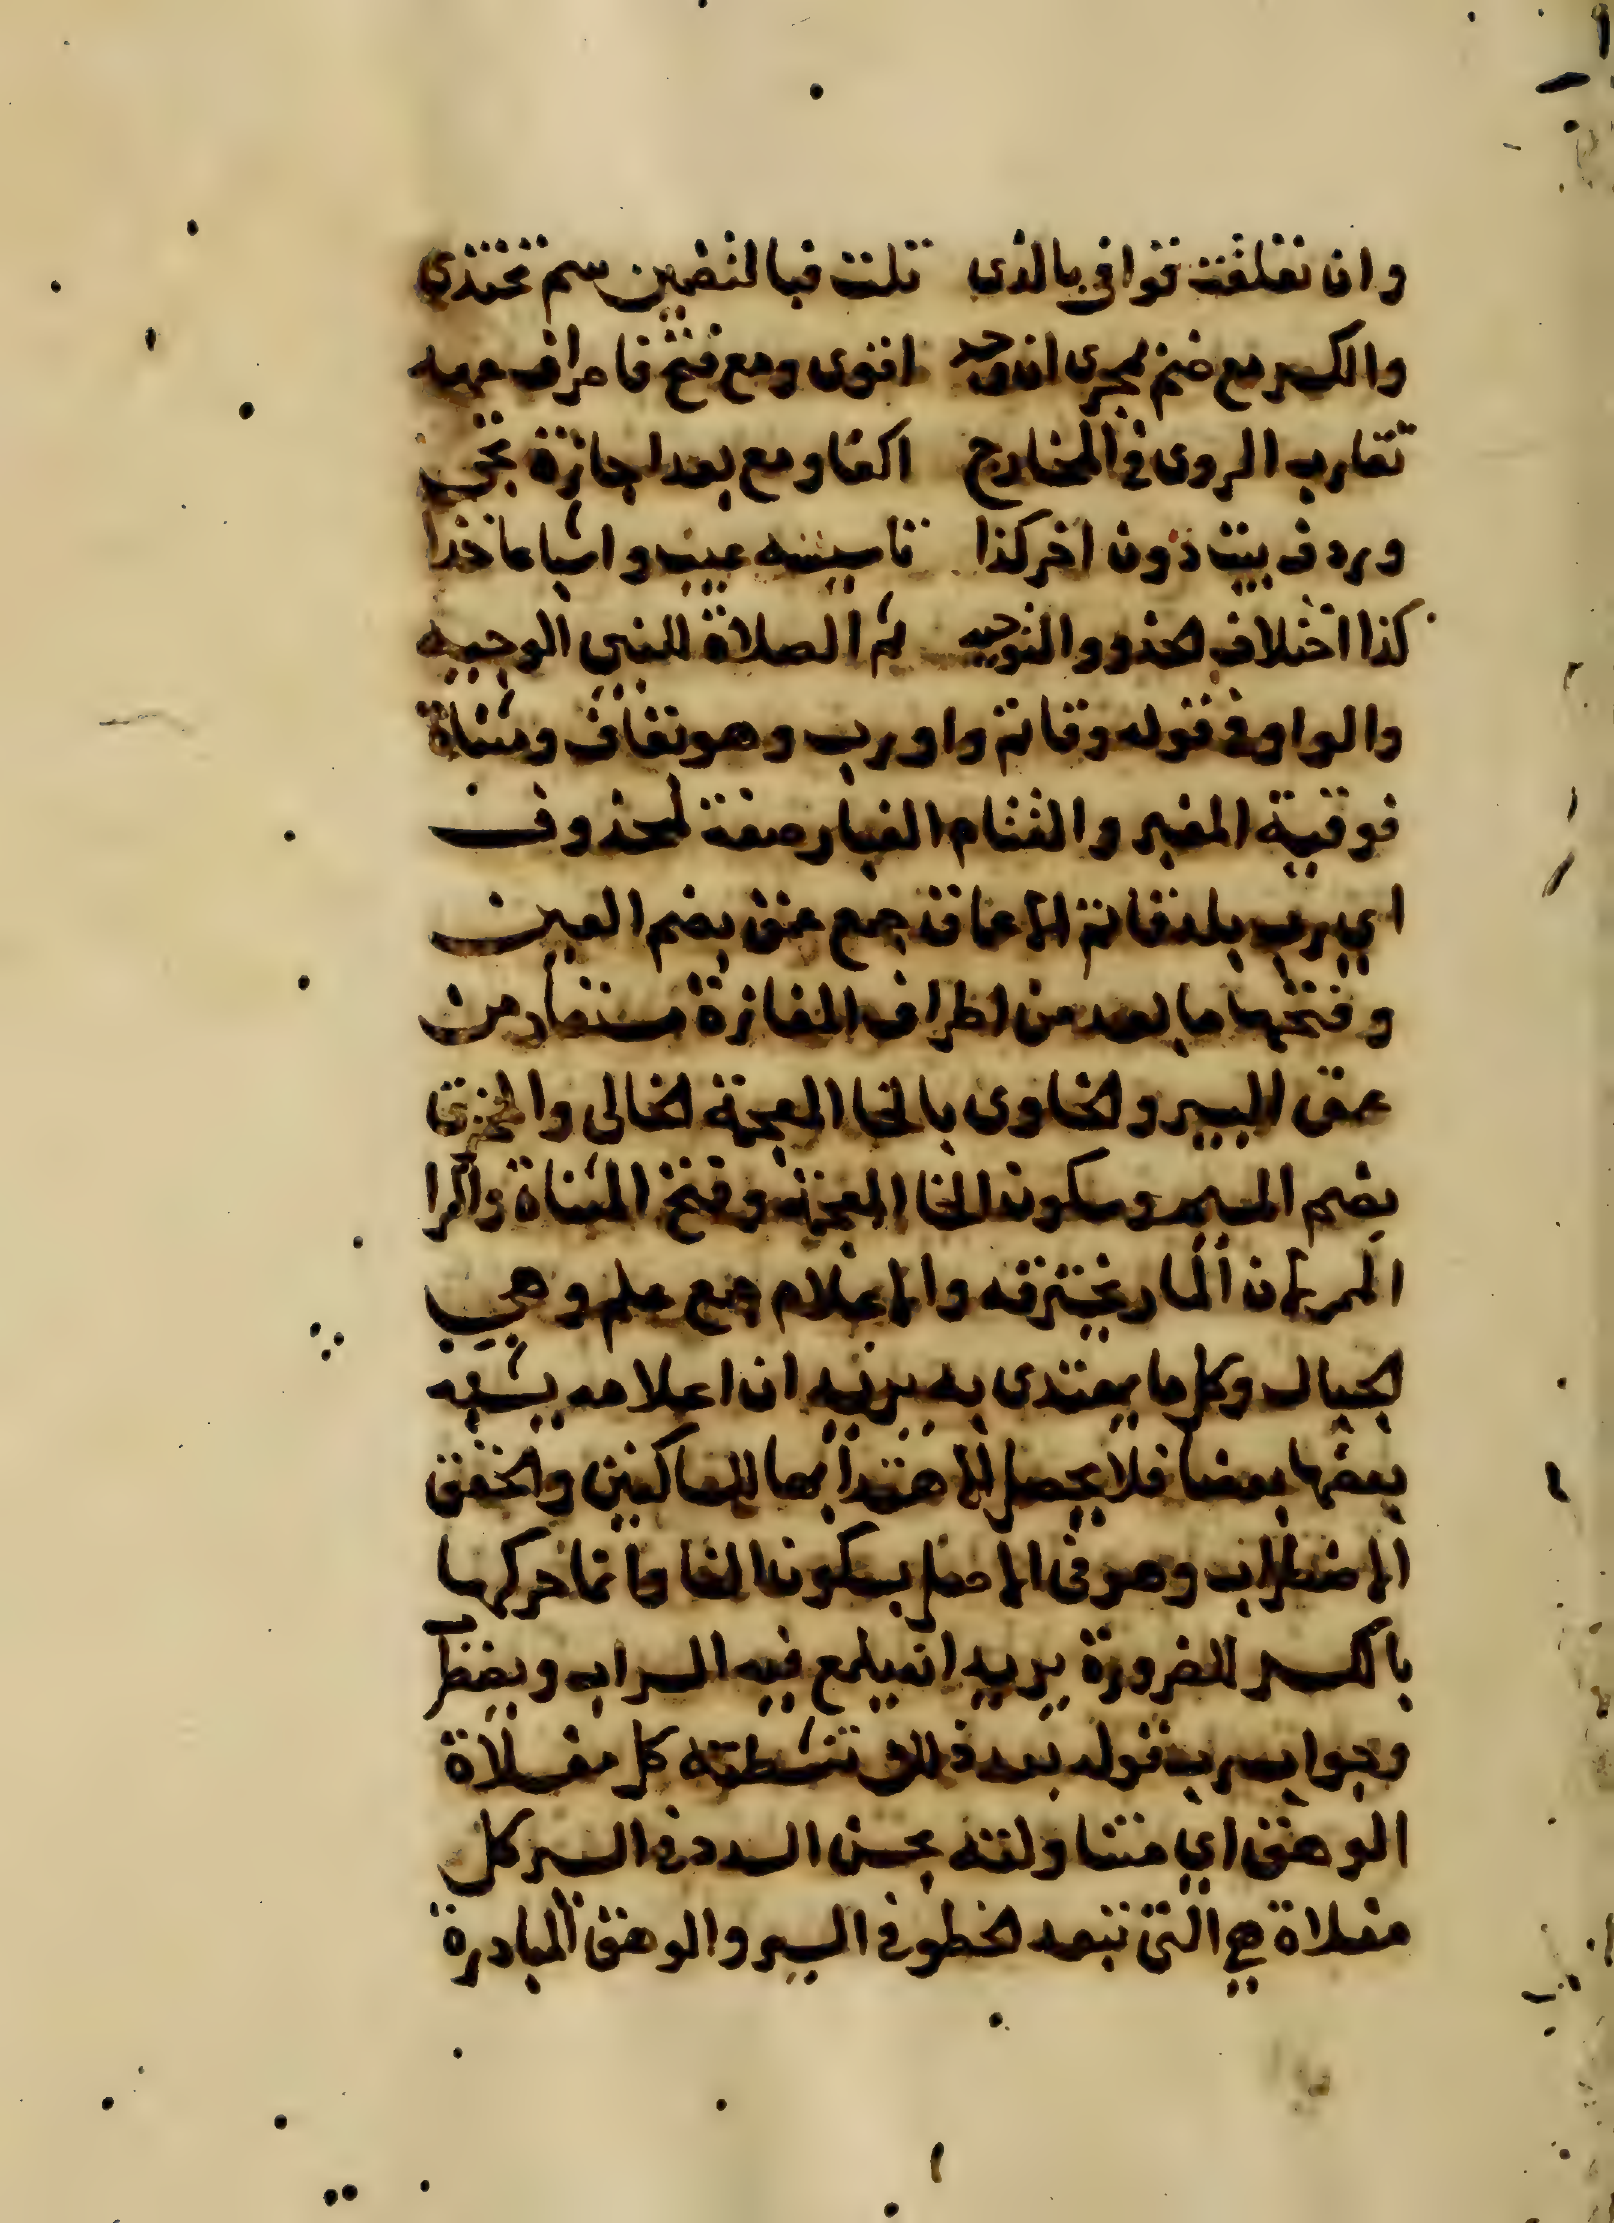 وان تعلقت قوافى بالذى تلت فبالتضمين سم تحتذى
والكسر مع ضم لمجرى ان وجد اقوى ومع فتح فاصراف
تقارب الروى فى المخارج اكفا ومع بعد اجازة تجى
وردف بيت دون اخر كذا تاسيسه عيب واشباعا خذا
كذا اختلاف الحذو والتوجيه ثم الصلاة للنبى الوجيه
والواو فى قوله وقاتم واو رب وهو بقاف ومثناة
فوقية المغبر والقتام الغبار صفة لمحذوف
اي رب بلد قاتم الاعماق جمع عمق بضم العين
وفتحها ما بعد من اطراف المفازة مستعار من
عمق البير والخاوى بالخا المعجمة الخالى والمخترق
بضم الميم وسكون الخا المعجمة وفتح المثناة والرا
الممر لان المار يخترقه والاعلام جمع علم وهي
الجبال وكل ما يهتدى به يريد ان اعلامه يشبه
بعضها بعضا فلا يحصل الاهتدا بها للسالكين والخفق
الاضطراب وهو فى الاصل بسكون الفا وانما حركها
بالكسر للضرورة يريد انه يلمع فيه السراب ويضطر
وجواب رب قوله بعد ذلك تنشطته كل مغلاة
الوهق اي تناولته بحسن السدد فى السير كل
مغلاة هي التى تبعد الخطو فى السير والوهق المبادرة